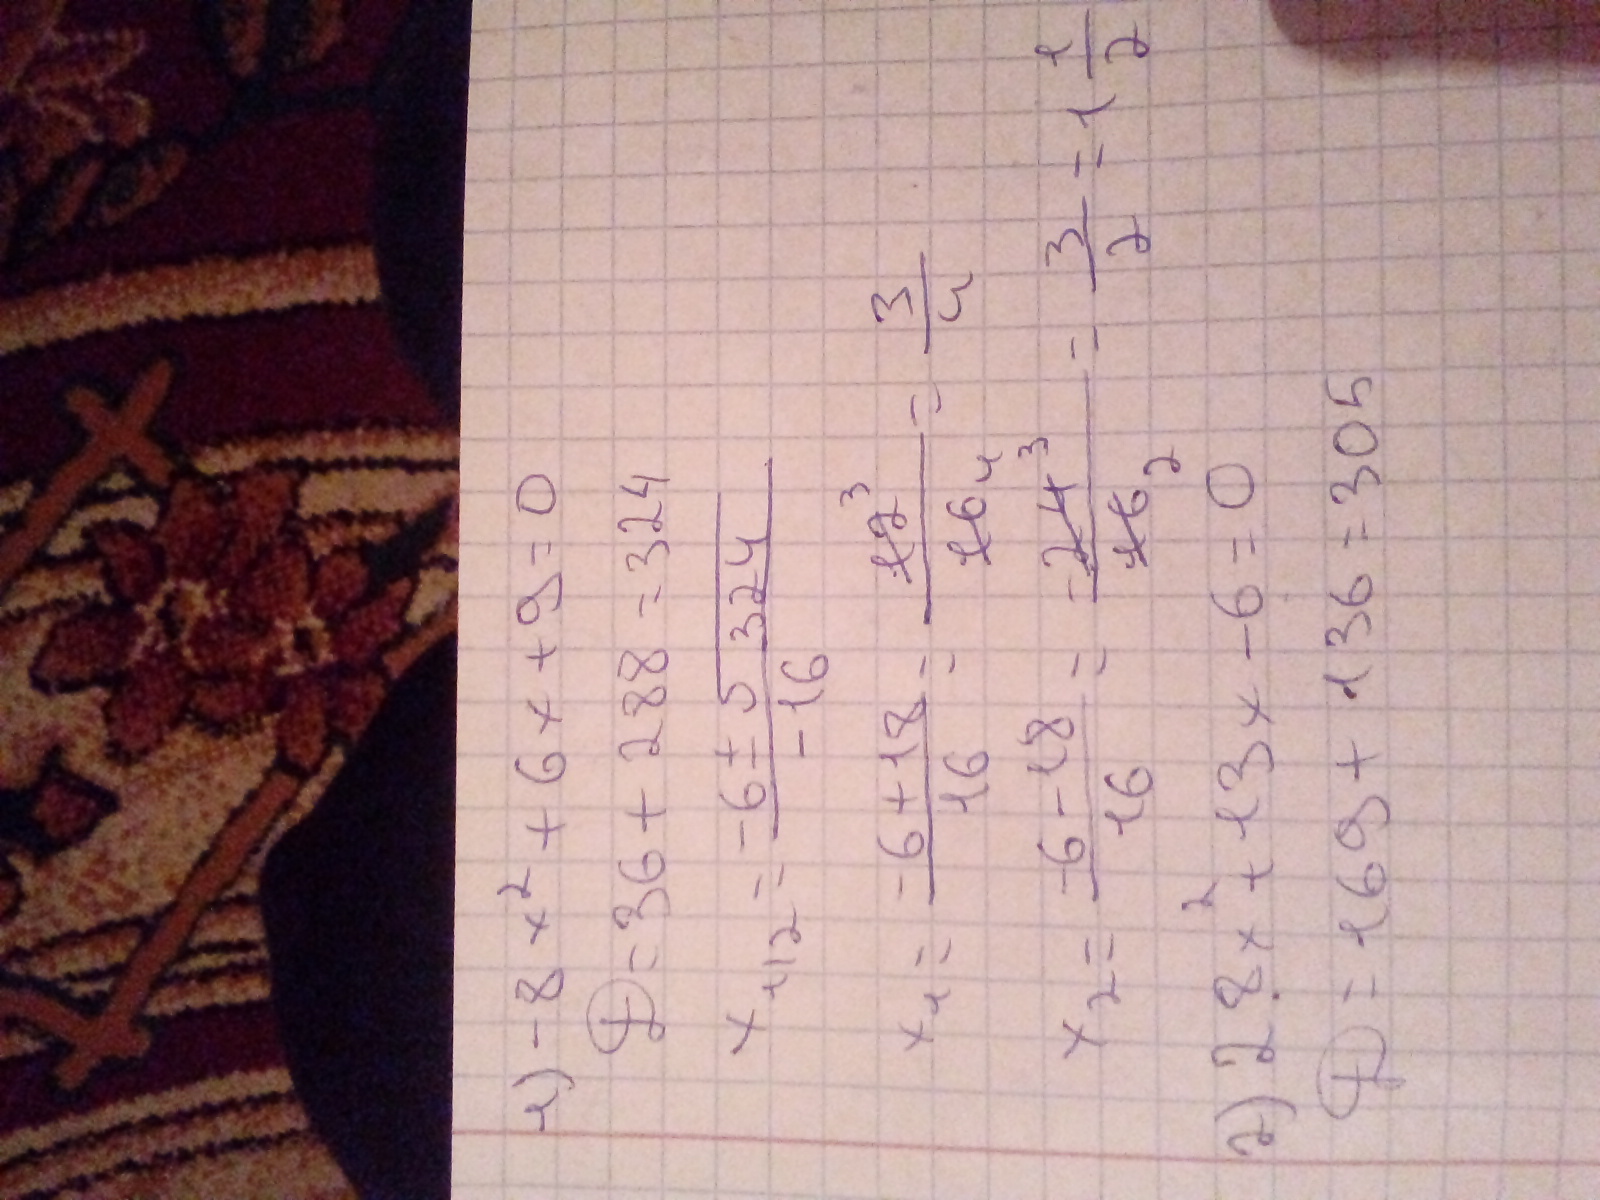 1) -8x² + 6x + 9 = 0
D = 36 + 288 = 324
x₁,₂ = (-6 ± √324)/-16
x₁ = (-6 + 18)/16 = 12³/16₄ = 3/4
x₂ = (-6 - 18)/16 = -24³/16₂ = 3/2 = 1 1/2
2) 28x² + 13x - 6 = 0
D = 169 + 136 = 305